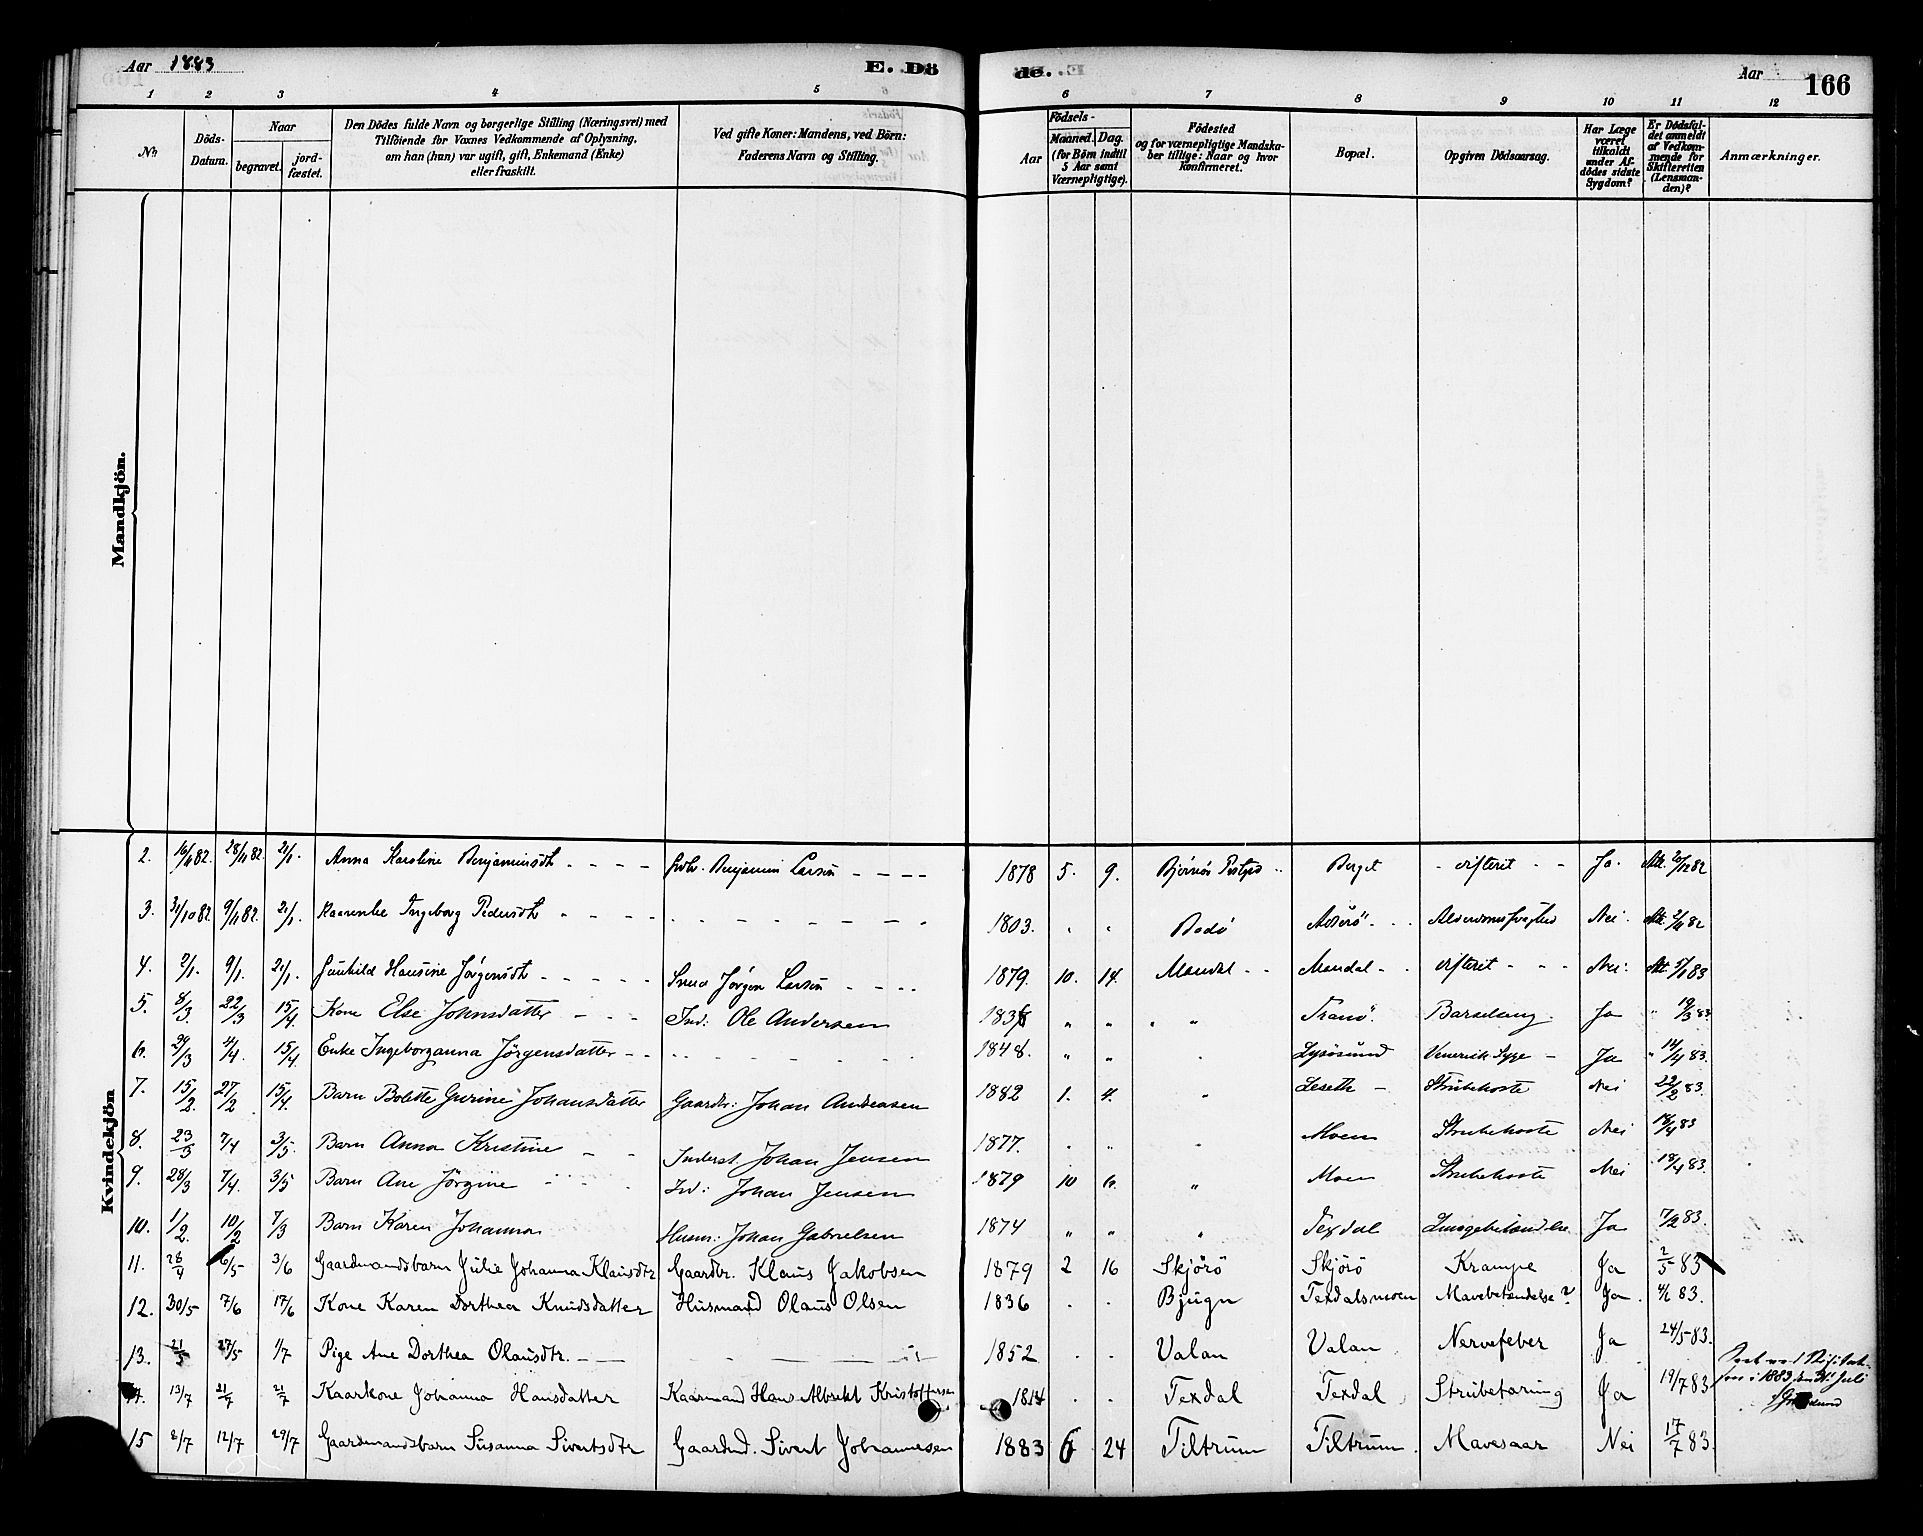 Aar 1883
E. Dö
de.
Aar
166
1 2 3 4 5 6 7 8 9 10 11 12
No
Döds-Datum.
Naar
begravet.
jord-fæstet.
Den Dödes fulde Navn og borgerlige Stilling (Næringsvei) med
Tilföiende for Voxnes Vedkommende af Oplysning,
om han (hun) var ugift, gift, Enkemand (Enke)
eller fraskilt.
Ved gifte Koner: Mandens, ved Börn:
Faderens Navn og Stilling.
Födsels-
Aar
Maaned. Dag.
(for Börn indtil
5 Aar samt
Værnepligtige).
Födested
og for værnepligtige Mandska-
ber tillige: Naar og hvor
konfirmeret.
Bopæl.
Opgiven Dödsaarsag.
Har Læge
været
tilkaldt
under Af-
dödes sidste
Sygdom?
Er Dödsfal-
det anmeldt
af Vedkom-
mende for
Skifteretten
(Lensman-
den)?
Anmærkninger.
Mandkjön.
Kvindekjön
2. 16/11 82. 28/11 82. 21/1. Anna Karoline Benjaminsdtr - - - - Benjamin Larsen - - - - 1878 5. 9. Bjørnør Berget - difterit - - Ja. 20/12 82
3. 31/10 82. 9/11 82. 21/1. Ingeborg Pedersdtr - - - - 1803. Bodö Nei. 2/11 82
4. 2/1. 9/1. 21/1. Gunhild Hansine Jørgensdtr - - - - Jørgen Larsen - - - - 1879. 10. 14. Mandal - - Mandal - - difterit - - - Nei. 5/1 83
5. 8/3. 22/3 15/4. Kone Else Johnsdatter - - - Ind: Ole Andersen 1838 " " " " Tranö. Barselseng. Ja " 19/3 83.
6. 29/3 4/4. 15/4. Enke Ingeborganna Jörgensdatter - - 1848. " " Lysösund Venerisk Syge - Ja " 14/4 83.
7. 15/2. 27/2 15/4. Barn Bolette Gurine Johansdatter Gaardbr: Johan Andreasen 1882 1. 4. " Leseth - Strubehoste Nei 22/2 83.
8. 23/3 7/4 3/5. Barn Anna Kristine - - Inderst. Johan Jensen 1877. Moen Strubehoste Nei 18/4 83
9. 28/3 7/4. 3/5 Barn Ane Jörgine Ind: Johan Jensen 1879 10 6. " Moen Strubehoste Nei 18/4 83.
10. 1/2. 10/2 7/3 Barn Karen Johanna Husm: Johan Gabrielsen 1874 " " " Texdal Lungebetændelse Ja 7/2 83.
11. 28/4 6/5 3/6 Gaardmandsbarn Julie Johanna Klausdtr Gaardbr. Klaus Jakobsen 1879 2 16 Skjörö Skjörö Krampe Ja 2/5 83
12. 30/5 7/6 17/6 Kone Karen Dorthea Knudsdatter Husmand Olaus Olsen 1836 . . Bjugn Texdalsmoen Mavebetændelse? Ja. 4/6 83.
13. 21/5 27/5 1/7 Pige Ane Dorthea Olausdtr. - - 1852 . . Valan Valan Nervefeber Ja 24/5 83.
14. 13/7 21/7 21/7 Kaarkone Johanna Hansdatter Kaarmand Hans Albrekt Kristoffersen 1814 . . Texdal Texdal Strubetæring Ja 19/7 83
15 8/7 12/7 29/7 Gaardmandsbarn Susanna Sivertsdtr Gaardmd. Sivert Johannesen 1883 6 24 Tiltrum Tiltrum. Mavesaar Nei 17/7 83.